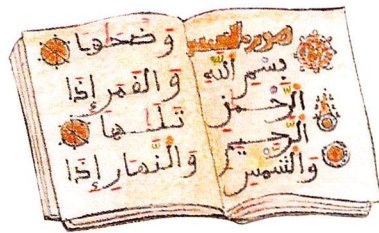 سورة الشمس
بسم الله
الرحمن
الرحيم
والشمس
وضحاها
والقمر إذا
تلاها
والنهار إذا